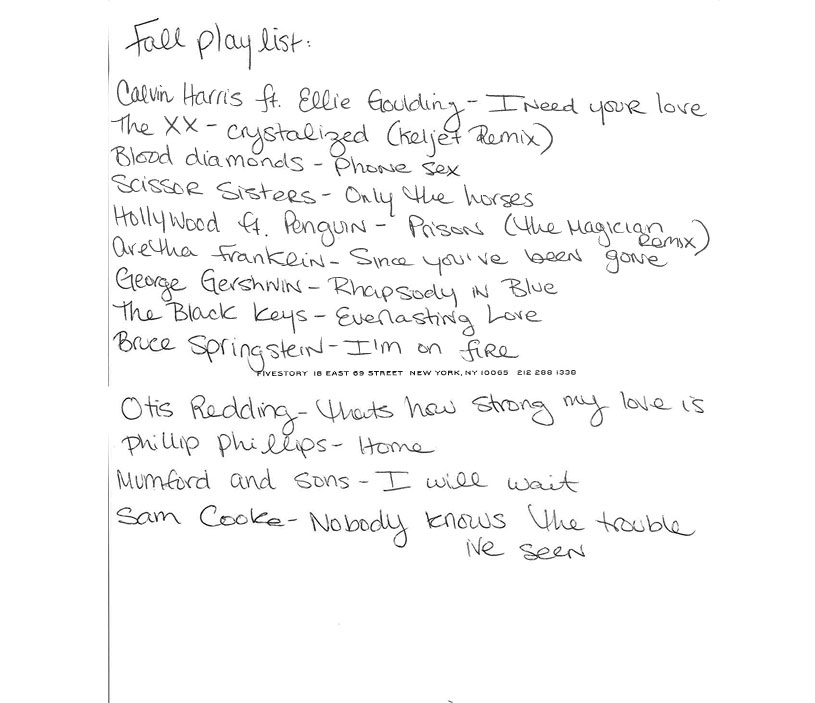 Fall playlist:
Calvin Harris ft. Ellie Goulding - I Need your love
The XX - crystalized (Keljet Remix)
Blood diamonds - Phone sex
Scissor Sisters - Only the horses
Hollywood ft. Penguin - Prison (the Magician
Remix)
aretha franklin - Since you've been gone
George Gershwin - Rhapsody in Blue
The Black Keys - Everlasting Love
Bruce Springstein - I'm on fire
FIVESTORY 18 EAST 69 STREET NEW YORK, NY 10065 212 288 1338
Otis Redding - thats how strong my love is
Phillip Phillips - Home
Mumford and sons - I will wait
Sam Cooke - Nobody knows the trouble
ive seen